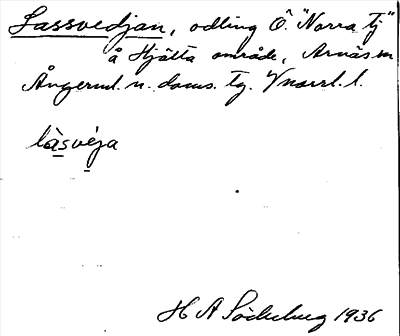 Lassvedjan, odling Ö. "Norra tj"
å Hjälta område, Arnäs sn
Ångerml. n. doms. tg. Vnorrl. l.
làsvéja
H A Söderberg 1936